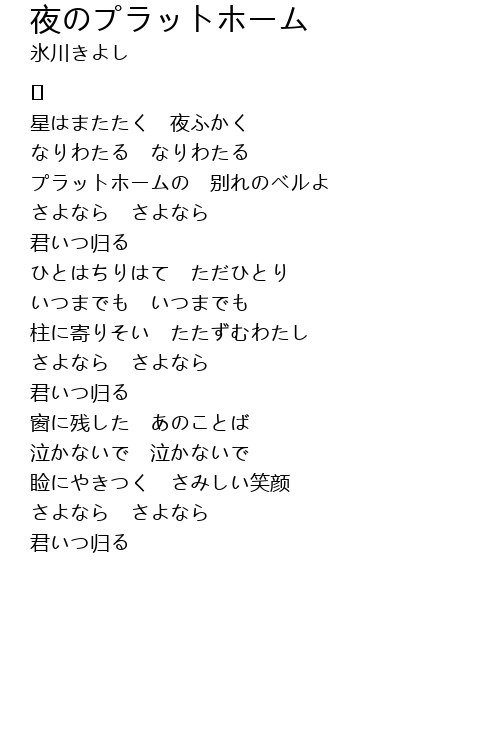 夜のプラットホーム
氷川きよし
星はまたたく　夜ふかく
なりわたる　なりわたる
プラットホームの　别れのベルよ
さよなら　さよなら
君いつ归る
ひとはちりはて　ただひとり
いつまでも　いつまでも
柱に寄りそい　たたずむわたし
さよなら　さよなら
君いつ归る
窗に残した　あのことば
泣かないで　泣かないで
睑にやきつく　さみしい笑颜
さよなら　さよなら
君いつ归る